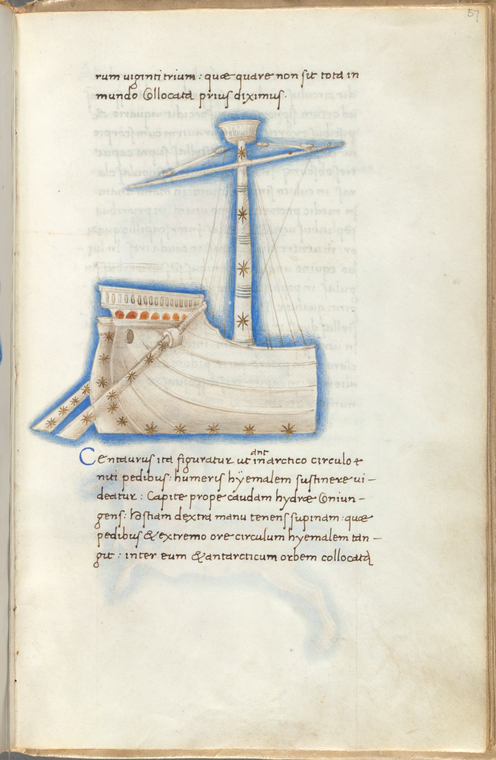 57
rum uiginti trium: quæ quare non sit tota in
mundo Collocata prius diximus.
Centaurus ita figuratur ut in arctico circulo &
ant
niti pedibus: humeris hÿemalem sustinere ui-
deatur: Capite prope caudam hydræ Coniun-
gens: hostiam dextra manu tenens supinam: quæ
pedibus & extremo ore circulum hyemalem tan-
git: inter eum & antarcticum orbem collocata